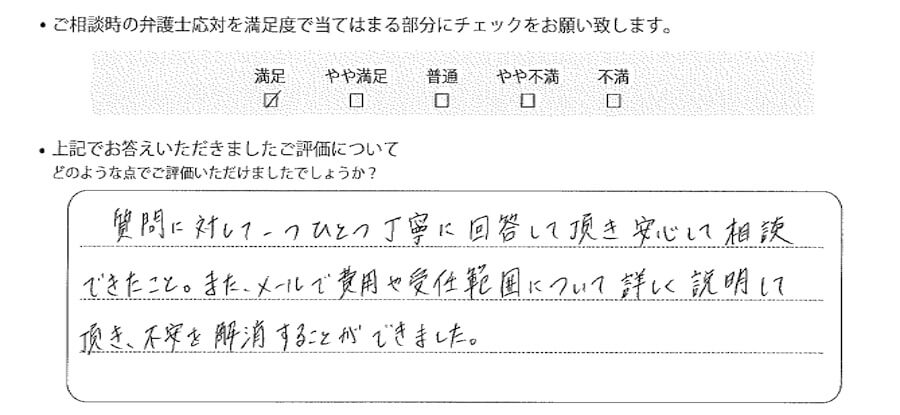 ・ご相談時の弁護士応対を満足度で当てはまる部分にチェックをお願い致します。
満足 やや満足 普通 やや不満 不満
☑ □ □ □ □
・上記でお答えいただきましたご評価について
どのような点でご評価いただけましたでしょうか？
質問に対して一つひとつ丁寧に回答して頂き安心して相談
できたこと。また、メールで費用や受任範囲について詳しく説明して
頂き、不安を解消することができました。